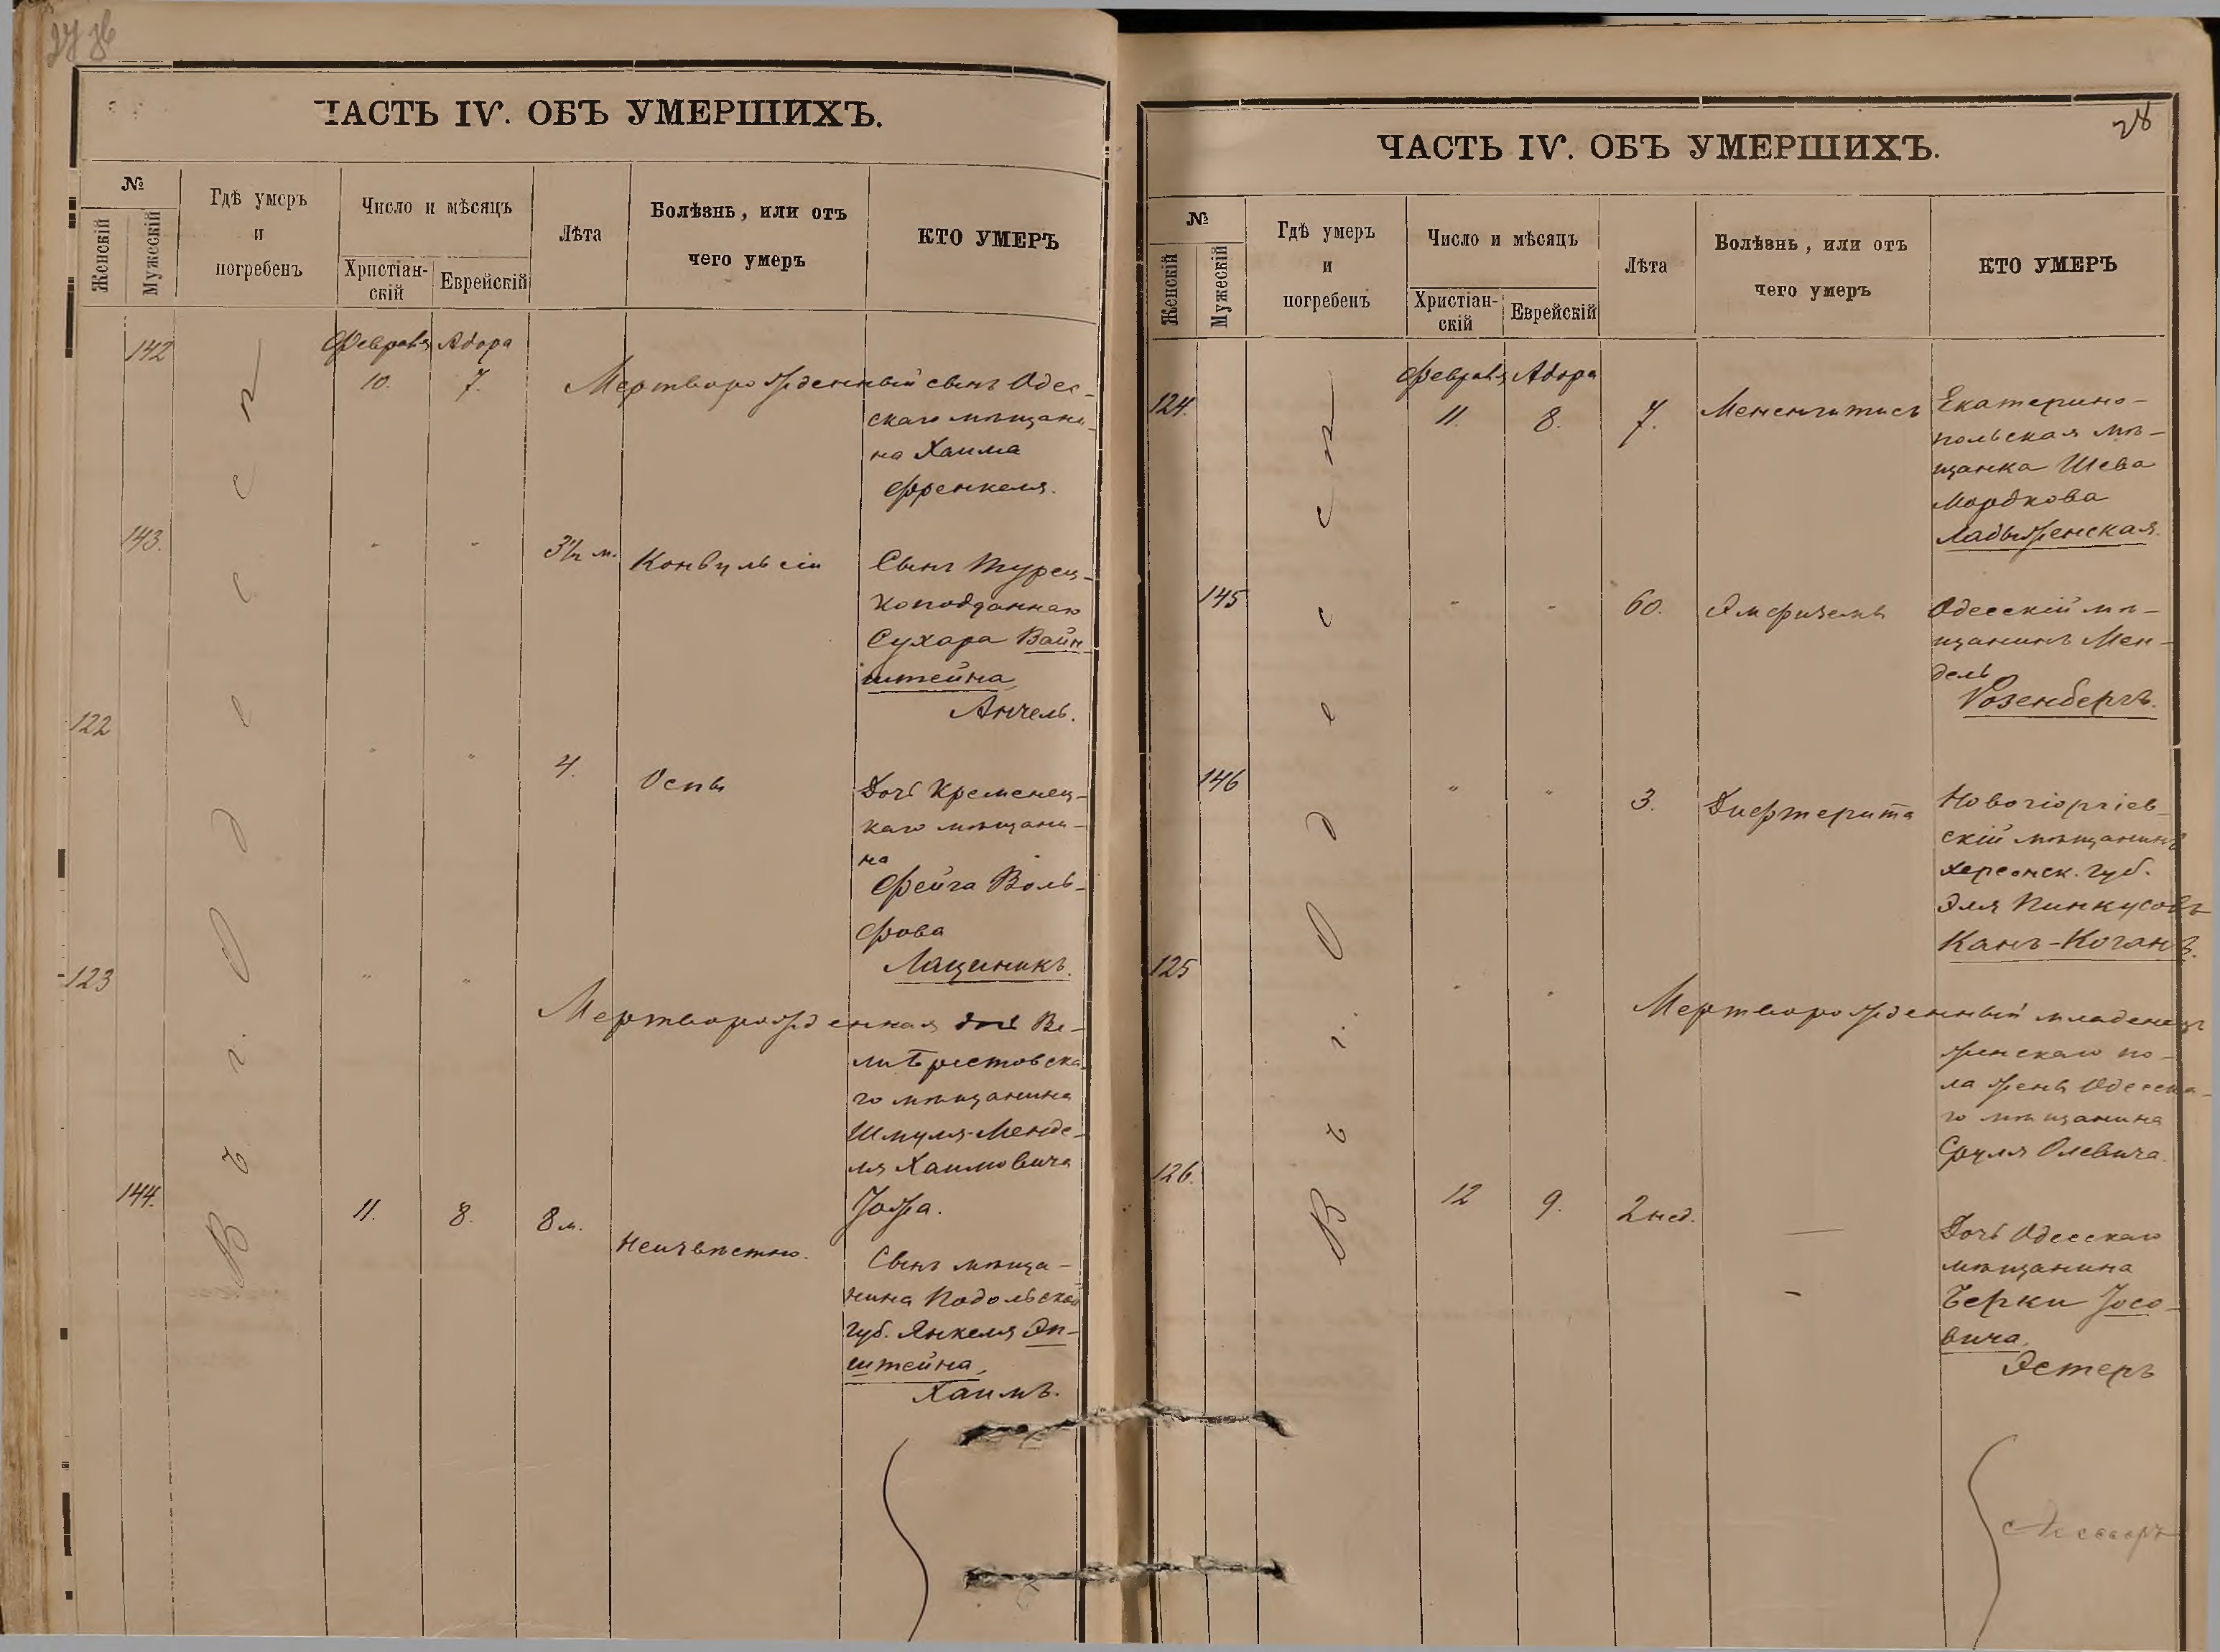 ЧАСТЬ IV. ОБЪ УМЕРШИХЪ.
№
Женскій
Мужескій
Гдѣ умеръ
и
погребенъ
Число и мѣсяцъ
Христіан-
скій
Еврейскій
Лѣта
Болѣзнь, или отъ
чего умеръ
КТО УМЕРЪ
Въ г. Одессѣ
142
Февраля Адора
10. 7. Мертворожденный сынъ Одес-
скаго мѣщани-
на Хаима
Френкеля.
143. " " 3½ м. Конвульсіи Сынъ Турец-
коподданнаго
Сухара Вайн-
штейна,
Анчель.
122 " " 4. Оспы Дочь Кременец-
каго мѣщани-
на
Фейга Воль-
фова
Лащиникъ.
123 " " Мертворожденная дочь Ве-
го мѣщанина
Шмуля-Менде-
ля Хаимовича
Іофа.
144. 11. 8. 8 м. Неизвѣстно. Сынъ мѣща-
нина Подольской
губ. Янкеля Эп-
штейна,
Хаимъ.
28
ЧАСТЬ IV. ОБЪ УМЕРШИХЪ.
№
Женскій
Мужескій
Гдѣ умеръ
и
погребенъ
Число и мѣсяцъ
Христіан-
скій
Еврейскій
Лѣта
Болѣзнь, или отъ
чего умеръ
КТО УМЕРЪ
Въ г. Одессѣ
Февраля Адора
124. 11. 8. 7. Менингитисъ Екатерино-
польская мѣ-
щанка Шева
Мордкова
Ладыженская.
145 " " 60. Эмфиземы Одесскій мѣ-
щанинъ Мен-
дель
Розенбергъ.
146 " " 3. Дифтерита Новогіоргіев-
скій мѣщанинъ
Херсонск. губ.
Эля Пинкусовъ
Канъ-Коганъ.
125 " " Мертворожденный младенецъ
женскаго по-
ла жены Одесска-
го мѣщанина
Сруля Олевича.
126. 12 9. 2 нед. — Дочь Одесскаго
мѣщанина
Берки Іосо-
вича,
Эстеръ